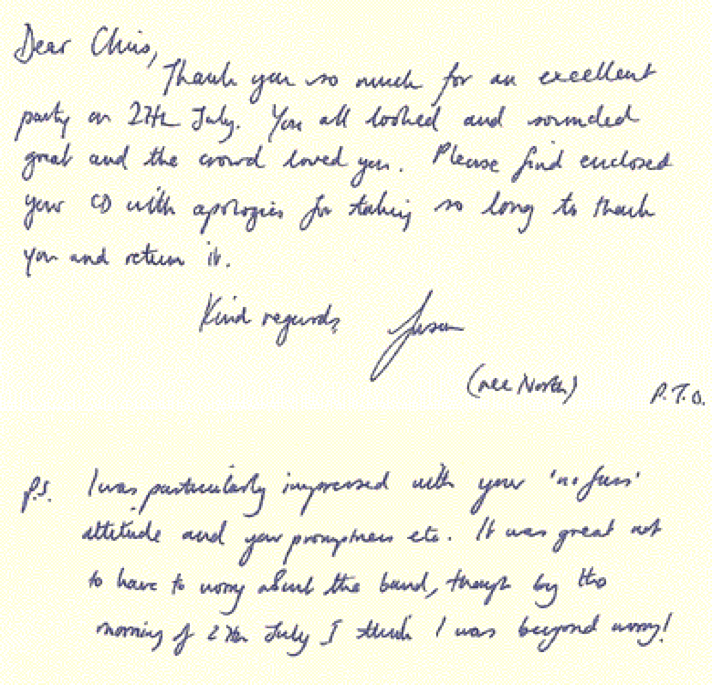 Dear Chris,
Thank you so much for an excellent
party on 27th July. You all looked and sounded
great and the crowd loved you. Please find enclosed
your CD with apologies for taking so long to thank
you and return it.
Kind regards, Susan
(nee North)
P.T.O.
P.S. I was particularly impressed with your 'no fuss'
attitude and your promptness etc. It was great not
to have to worry about the band, though by the
morning of 27th July I think I was beyond worry!